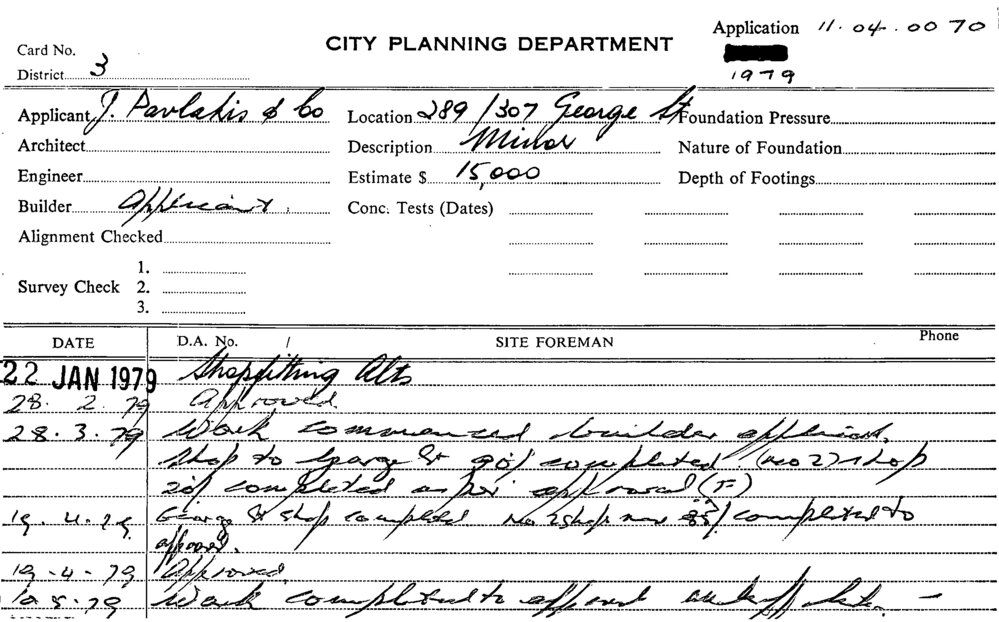 Application 11.04.0070
Card No.
CITY PLANNING DEPARTMENT
District 3
1979
Applicant J. Pavlakis & Co Location 289/307 George St Foundation Pressure
Architect Description Minor Nature of Foundation
Engineer Estimate $ 15,000 Depth of Footings
Builder Applicant. Conc. Tests (Dates)
Alignment Checked
1.
Survey Check 2.
3.
DATE D.A. No. / SITE FOREMAN Phone
22 JAN 1979 Shopfitting Alts
28. 2. 79 Approved
28. 3. 79 Work commenced builder applicant.
Shop to George St 90% completed. (No 2) shop
20% completed as per approval (F)
19. 4. 79 George St shop completed No 2 shop now 85% completed to
approval.
19-4-79 Approved
10.5.79 Work completed to approval